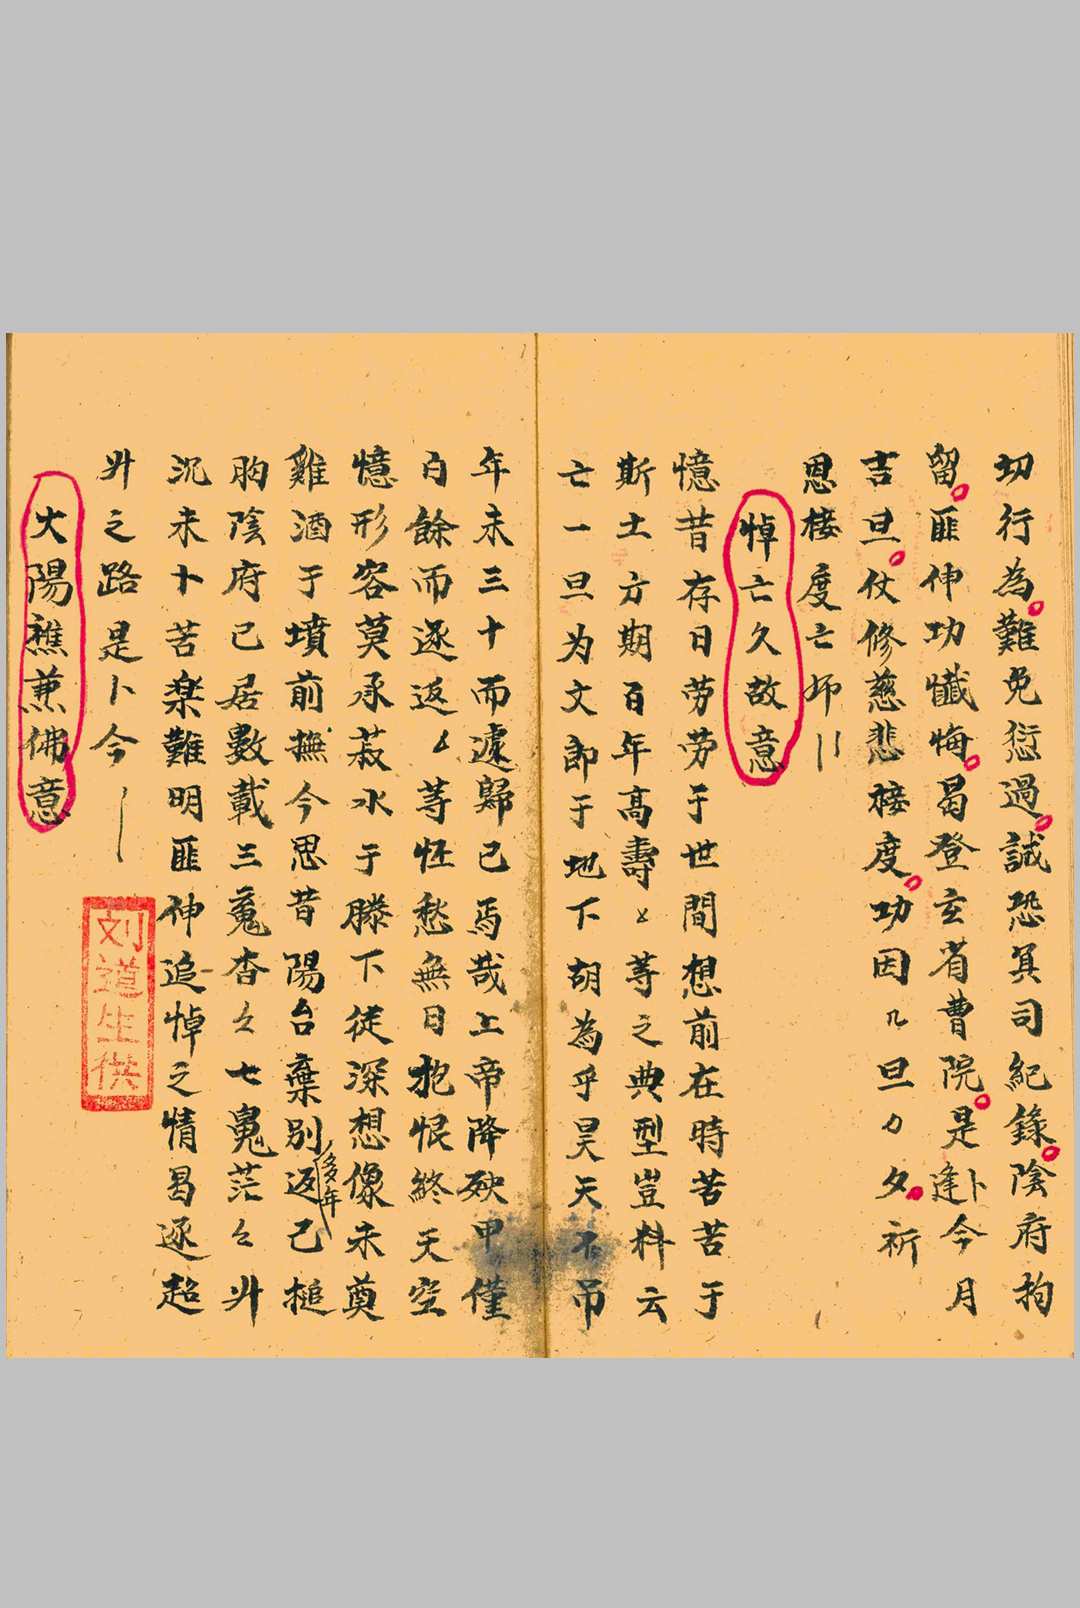 切行為難免愆過誠恐冥司紀錄陰府拘
留匪伸功懺悔曷登玄省曹院是逢卜今月
吉旦仗修慈悲接度功因几旦力夕祈
恩接度亡师
悼亡久故意
憶昔存日劳劳于世間想前在時苦苦于
斯土方期百年高壽々等之典型豈料云
亡一旦为文即于地下胡為乎昊天不吊
年未三十而遽歸已焉哉上帝降殃甲僅
白餘而逐返々等怀愁無日抱恨終天空
憶形容莫承菽水于膝下徒深想像未奠
雞酒于墳前撫今思昔陽台棄别返多年己搥
胸陰府已居數載三䰟杳々七魄茫々廾
沉未卜苦楽難明匪伸追悼之情曷逐超
廾之路是卜今
大陽醮兼佛意
刘道生供